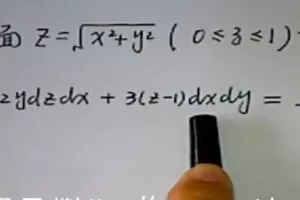 面 z=√x²+y² (0≤z≤1)
2ydzdx + 3(z-1)dxdy =